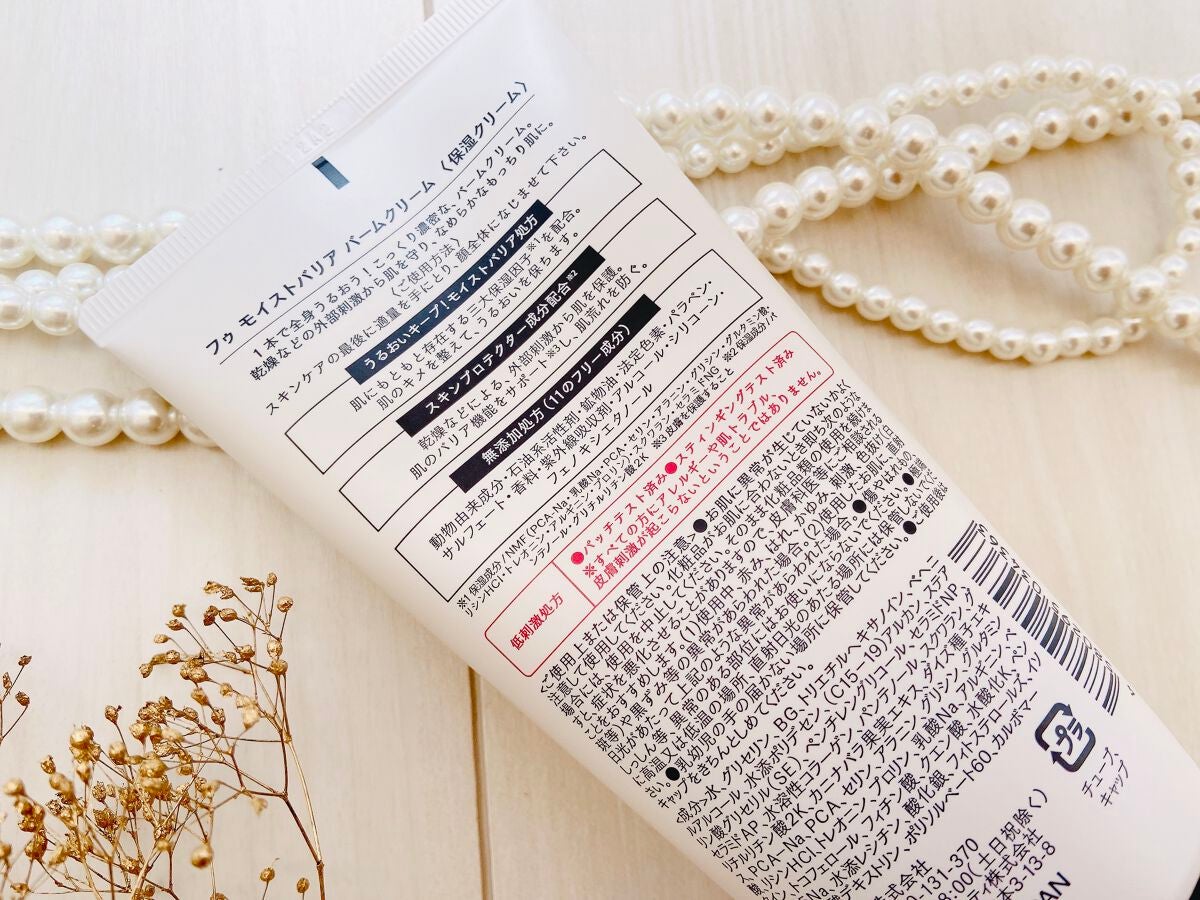 フゥ モイストバリア バームクリーム〈保湿クリーム〉
1本で全身うるおう!こっくり濃密な、バームクリーム。
乾燥などの外部刺激から肌を守り、なめらかなもっちり肌に。
〈ご使用方法〉
スキンケアの最後に適量を手にとり、顔全体になじませて下さい。
うるおいキープ!モイストバリア処方
肌にもともと存在する三大保湿因子※1を配合。
肌のキメを整えて、うるおいを保ちます。
スキンプロテクター成分配合※2
乾燥などによる、外部刺激から肌を保護。
肌のバリア機能をサポート※3し、肌荒れを防ぐ。
無添加処方(11のフリー成分)
動物由来成分・石油系活性剤・鉱物油・法定色素・パラベン・
サルフェート・香料・紫外線吸収剤・アルコール・シリコーン・
フェノキシエタノール
※1 保湿成分/NMF(PCA-Na・乳酸Na・PCA・セリン・アラニン・グリシン・グルタミン酸・
リシンHCl・トレオニン・アルギニン・プロリン)・スクワラン・セラミドNG ※2 保湿成分/パ
ンテノール・グリチルリチン酸2K ※3 皮膚を保護すること
低刺激処方
●パッチテスト済み●スティンギングテスト済み
※すべての方にアレルギーや肌トラブル、
皮膚刺激が起こらないということではありません。
<使用上または保管上の注意>●お肌に異常が生じていないかよく
注意して使用してください。化粧品がお肌に合わないとき即ちがのような
場合には、使用を中止してください。そのまま化粧品類の使用を続ける
と、症状を悪化させることがありますので、皮膚科医等にご相談される
ことをおすすめします。(1)使用中、赤み、はれ、かゆみ、刺激、色抜け(白
斑等)や黒ずみ等の異常があらわれた場合 (2)使用したお肌に、直射
日光があたって上記のような異常があらわれた場合●傷やはれもの、
しっしん等、異常のある部位にはお使いにならないでください。●極端
に高温又は低温の場所、直射日光のあたる場所には保管しないでくだ
さい。●乳幼児の手の届かない場所に保管してください。●ご使用後は
キャップをきちんとしめてください。
<成分>水、グリセリン、BG、トリエチルヘキサノイン、ベヘニ
ルアルコール、水添ポリデセン、(C15-19)アルカン、ステア
リン酸グリセリル(SE)、ペンチレングリコール、セラミドNP、
セラミドAP、水溶性コラーゲン、パンテノール、スクワラン、グ
チューブ、
キャップ
プラ
131-370
(土日祝除く)
ティ株式会社
本3-13-8